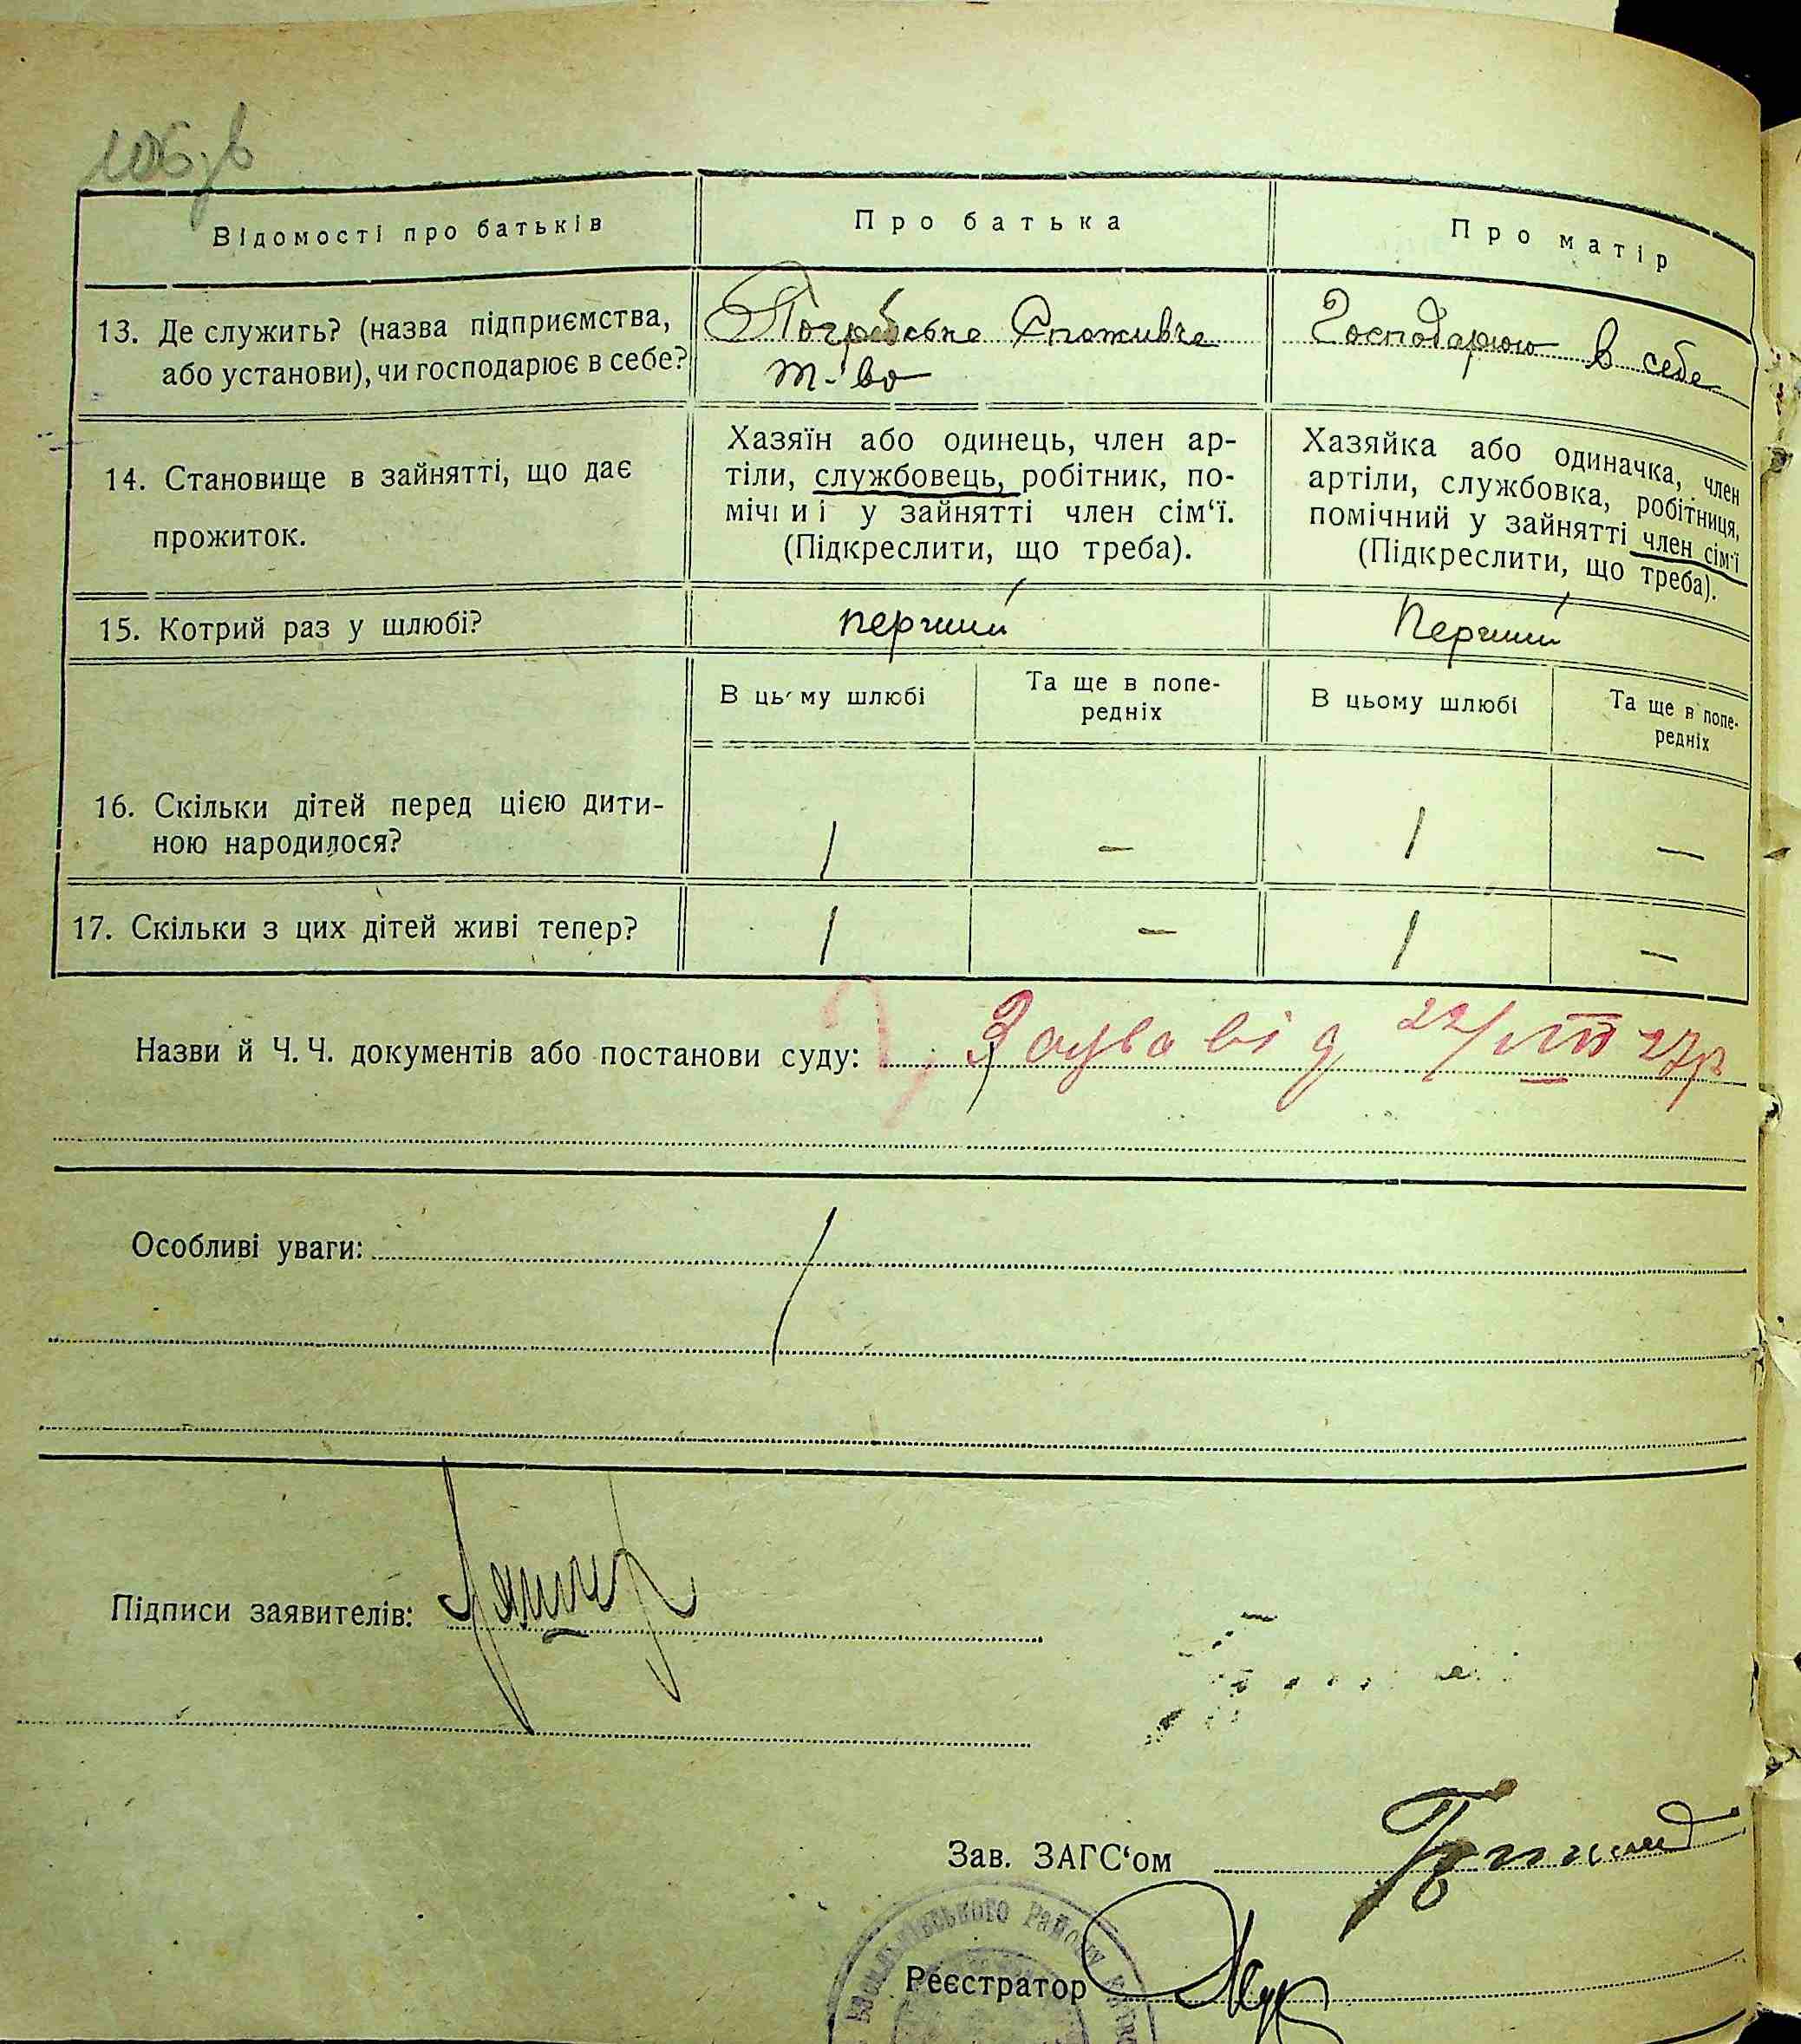 106 зв
Відомості про батьків
Про батька
Про матір
13. Де служить? (назва підприємства,
або установи), чи господарює в себе?
Погребське Споживче
т-во
Господарюю в себе
14. Становище в зайнятті, що дає
прожиток.
Хазяїн або одинець, член ар-
тіли, службовець, робітник, по-
мічний у зайнятті член сім‘ї.
(Підкреслити, що треба).
Хазяйка або одиначка, член
артіли, службовка, робітниця,
помічний у зайнятті член сім‘ї
(Підкреслити, що треба).
15. Котрий раз у шлюбі?
перший
Перший
В цьому шлюбі
Та ще в попе-
редніх
В цьому шлюбі
Та ще в попе-
редніх
16. Скільки дітей перед цією дити-
ною народилося?
1
—
1
—
17. Скільки з цих дітей живі тепер?
1
—
1
—
Назви й Ч. Ч. документів або постанови суду: Заява від 22/VIII 27р
Особливі уваги:
Підписи заявителів:
Зав. ЗАГС‘ом
Реєстратор
Району